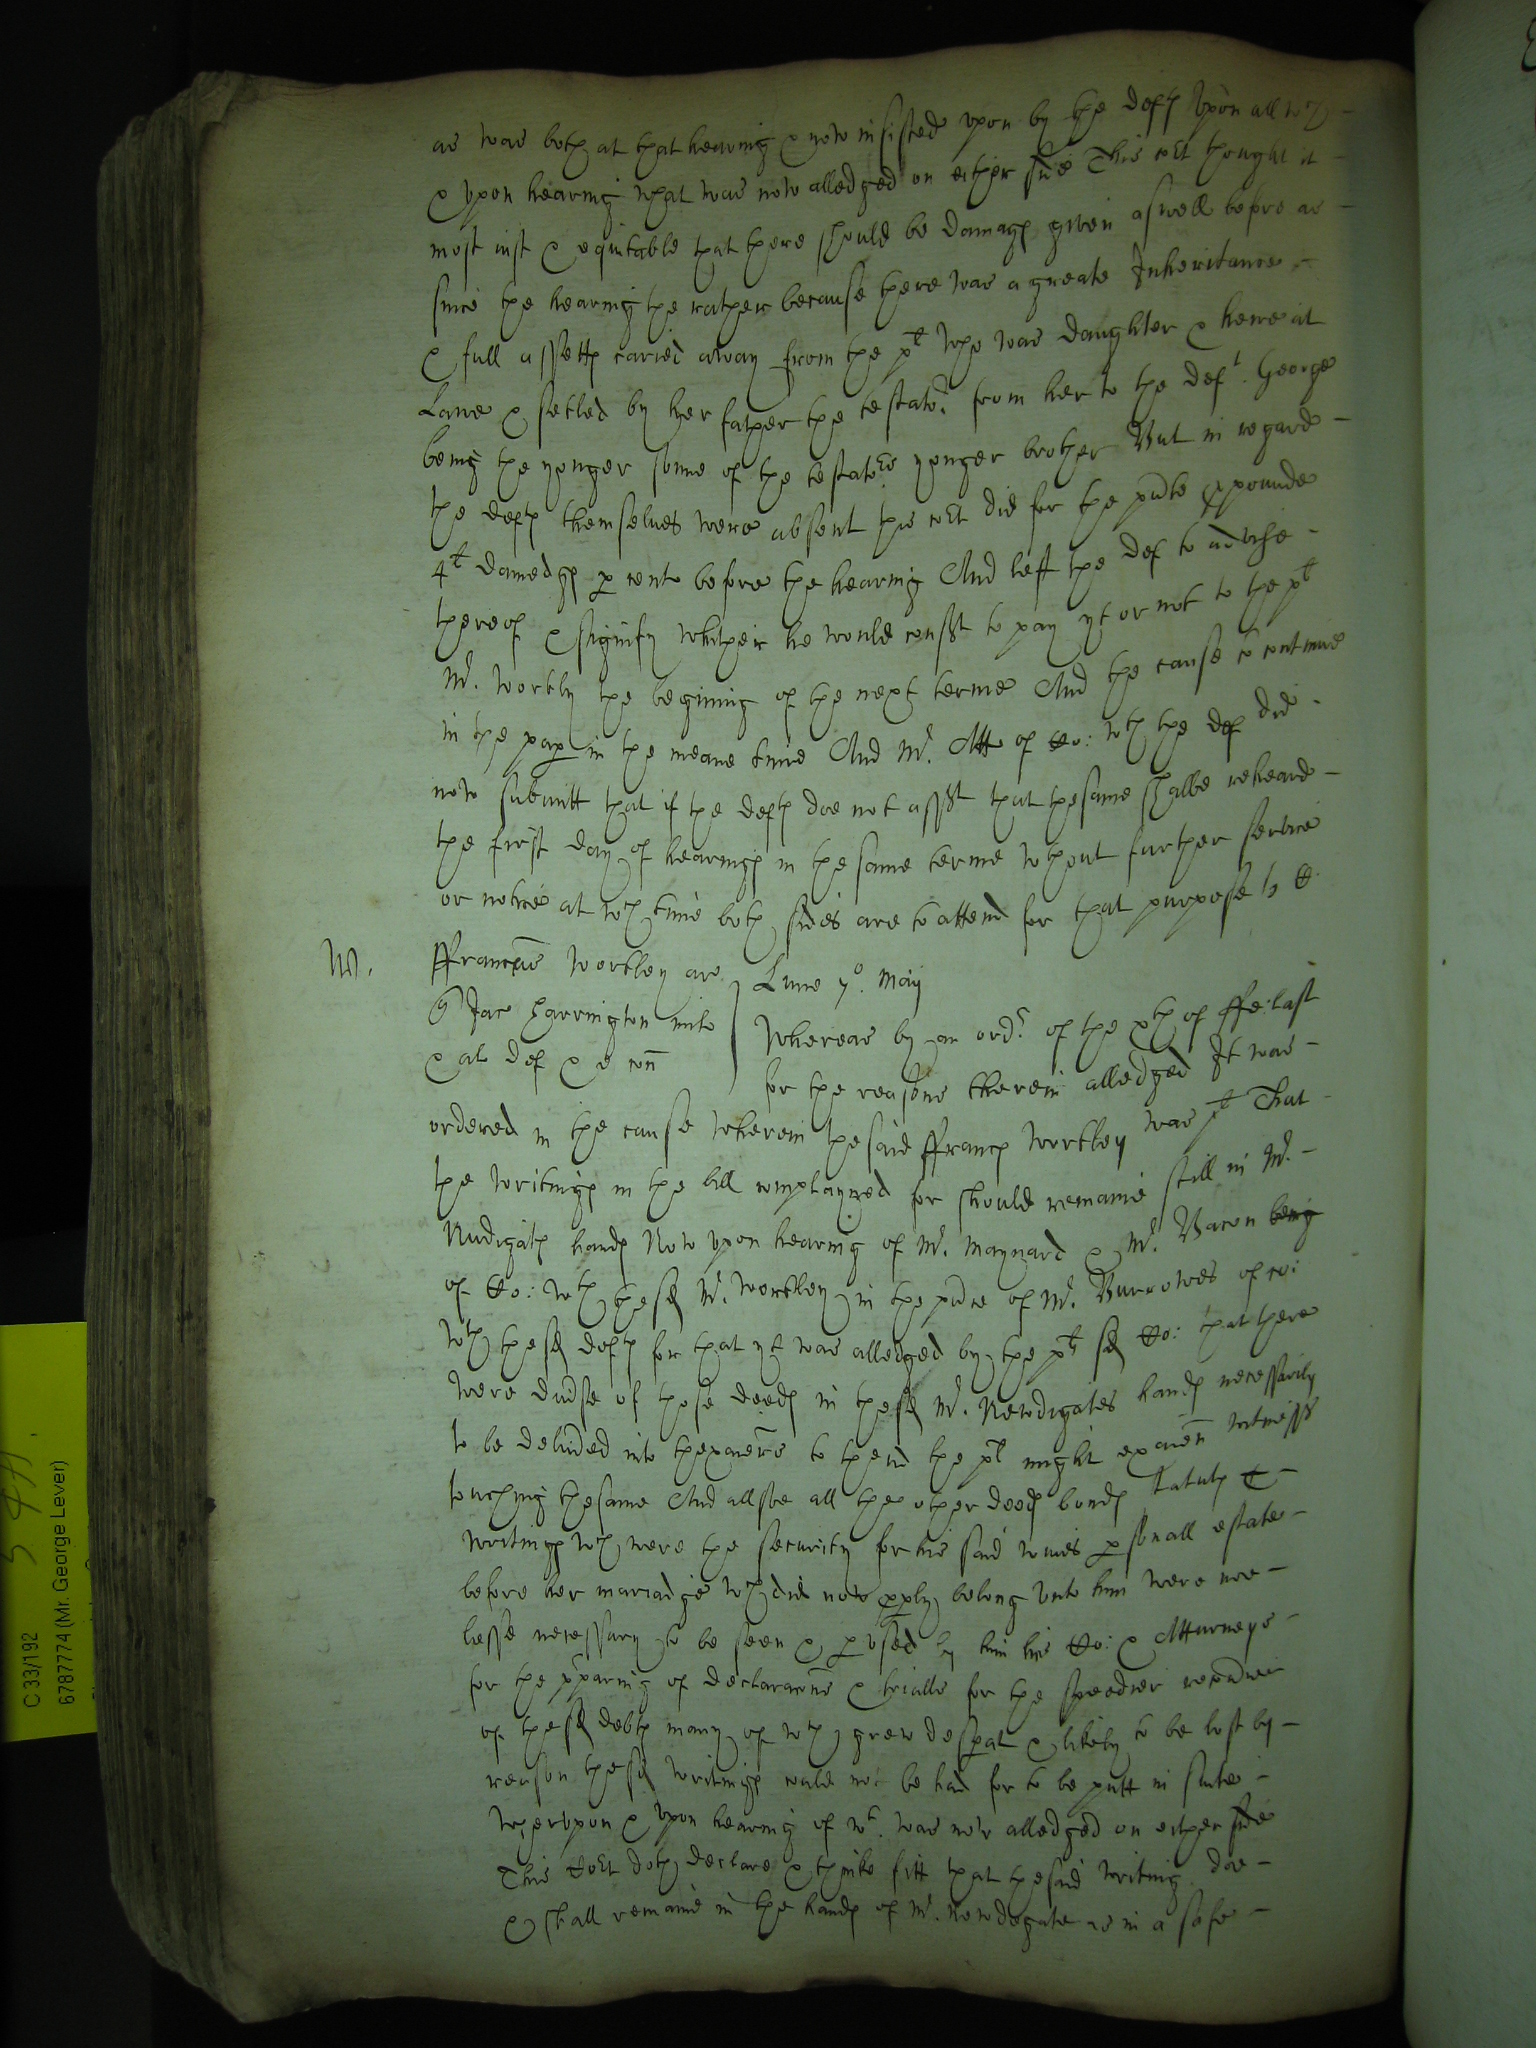 as was both at that hearing & now insisted vpon by the Defts Vpon all wch
& vpon hearing what was now alledged on either side This cort thought it
most iust & equitable that there should be damages given aswell before as
since the hearing the rather because there was a greate Inheritance
& full assetts caried away from the plt who was daughter & heire at
Lawe & setled by her father the testator from her to the Deft. George
being the yonger sonne of the testators yonger brother But in regard
the Defts themselues were absent this cort did for the pnte ppounde
4l damedges p cent before the hearing And left the Def to advise
thereof & signify whither he would consent to pay yt or not to the plt
Mr. Wortly the begining of the next terme And the cause to contynue
in the pap in the meane tyme And Mr. Atto of Co: wth the Def did
now submitt that if the Defts doe not assent that thesame shalbe reheard
the first day of hearings in the same terme wthout further service
or notice at wch time both sides are to attend for that purpose
W. ffranciscus Wortley ar
q Jac Harrington milt
& al Def & e con
Lune 7o. May
Whereas by an ordr. of the xth of ffe: last
for the reasons therein alledged It was
ordered in the cause wherein the said ffrancis Wortley was plt That
the writings in the bill complayned for should remaine still in Mr.
Nudigats hands Now vpon hearing of Mr. Maynard & Mr. Bacon being
of Co: wth the sd Mr. Wortley in the pnce of Mr. Burrowes of co:
wth the sd Defts for that yt was alledged by the plts sd Co: that there
were diuerse of those deeds in the sd Mr. Newdigates hands necessarily
to be deliuered into thexaiers to thend the plt might examen witnesses
touching thesame And allsoe all the other deeds bonds statuts &
writings wch were the security for his said wiues psonall estate
before her mariadge wch did now pply belong vnto him were noe
lesse necessary to be seen & pvsed by him his Co: & Atturneys
for the pparing of declaracons & trialls for the speedier recouerie
of the sd debts many of wch grew desperat & likely to be lost by
reason the sd writings could not be had for to be putt in suite
Wherevpon & vpon hearing of wt. was now alledged on either side
This Cort doth declare & thinke fitt that the said writings doe
& shall remaine in the hands of Mr. Newdegate as in a safe
C 33/192
6787774 (Mr. George Lever)